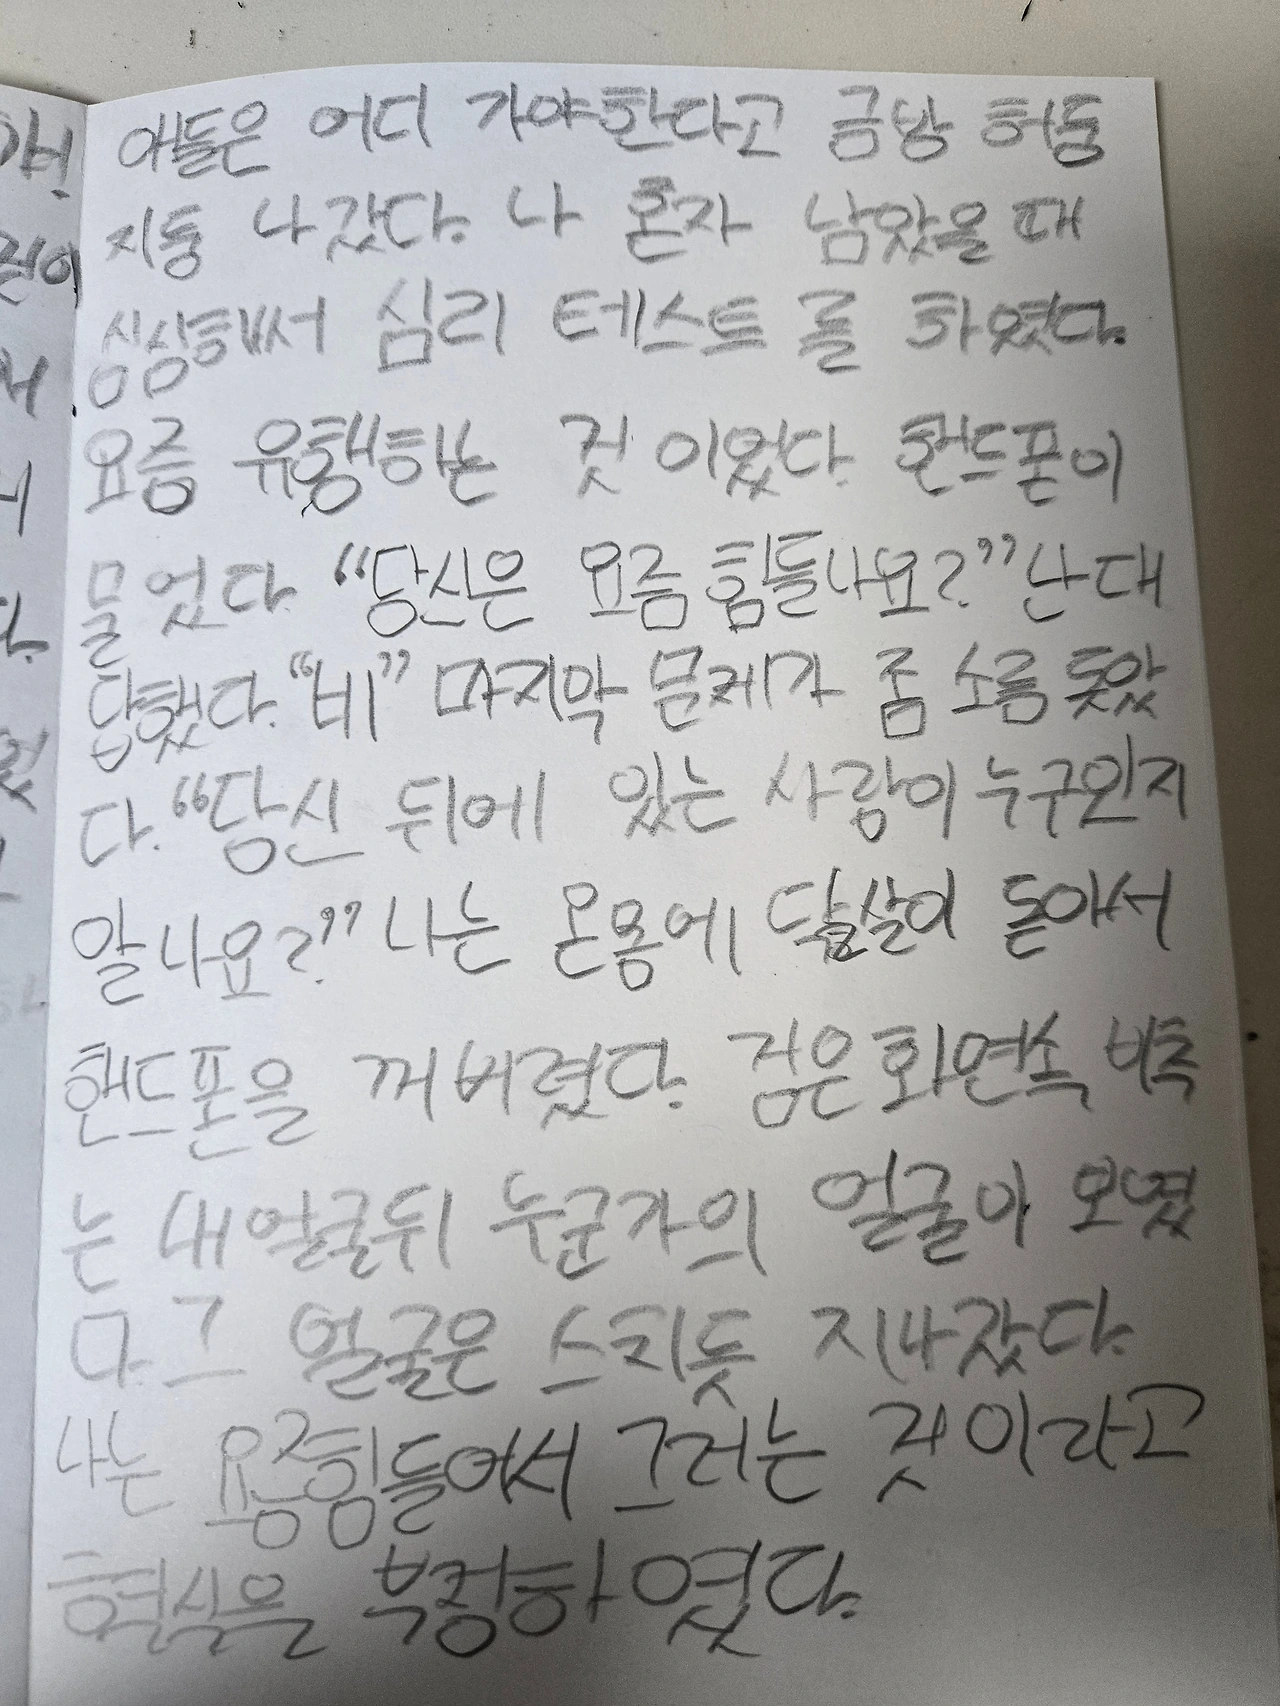 애들은 어디 가야한다고 금방 허둥
지둥 나갔다. 나 혼자 남았을 때
심심해서 심리 테스트를 하였다.
요즘 유행하는 것이었다. 핸드폰이
물었다. “당신은 요즘 힘들나요?” 난 대
답했다. “네” 마지막 문제가 좀 소름 돋았
다. “당신 뒤에 있는 사람이 누구인지
알나요?” 나는 온몸에 닭살이 돋아서
핸드폰을 꺼버렸다. 검은 화면속 비추
는 내 얼굴뒤 누군가의 얼굴이 보였
다. 그 얼굴은 스치듯 지나갔다.
나는 요즘 힘들어서 그러는 것이라고
현실은 부정하였다.